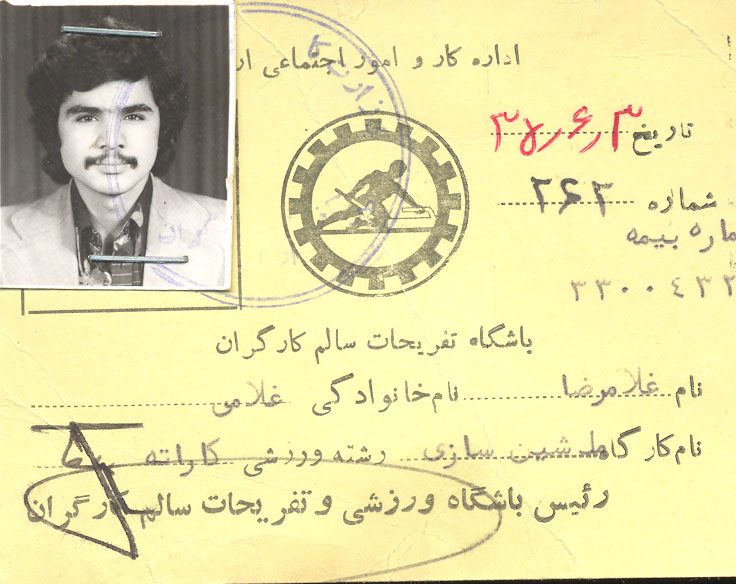 اداره کار و امور اجتماعی
تاریخ
شماره ۲۶۲
ماره بیمه
۳۳۰۰۴۳۳
باشگاه تفریحات سالم کارگران
نام غلامرضا نام خانوادگی غلامی
نام کارگاه ماشین سازی رشته ورزشی کاراته
رئیس باشگاه ورزشی و تفریحات سالم کارگران